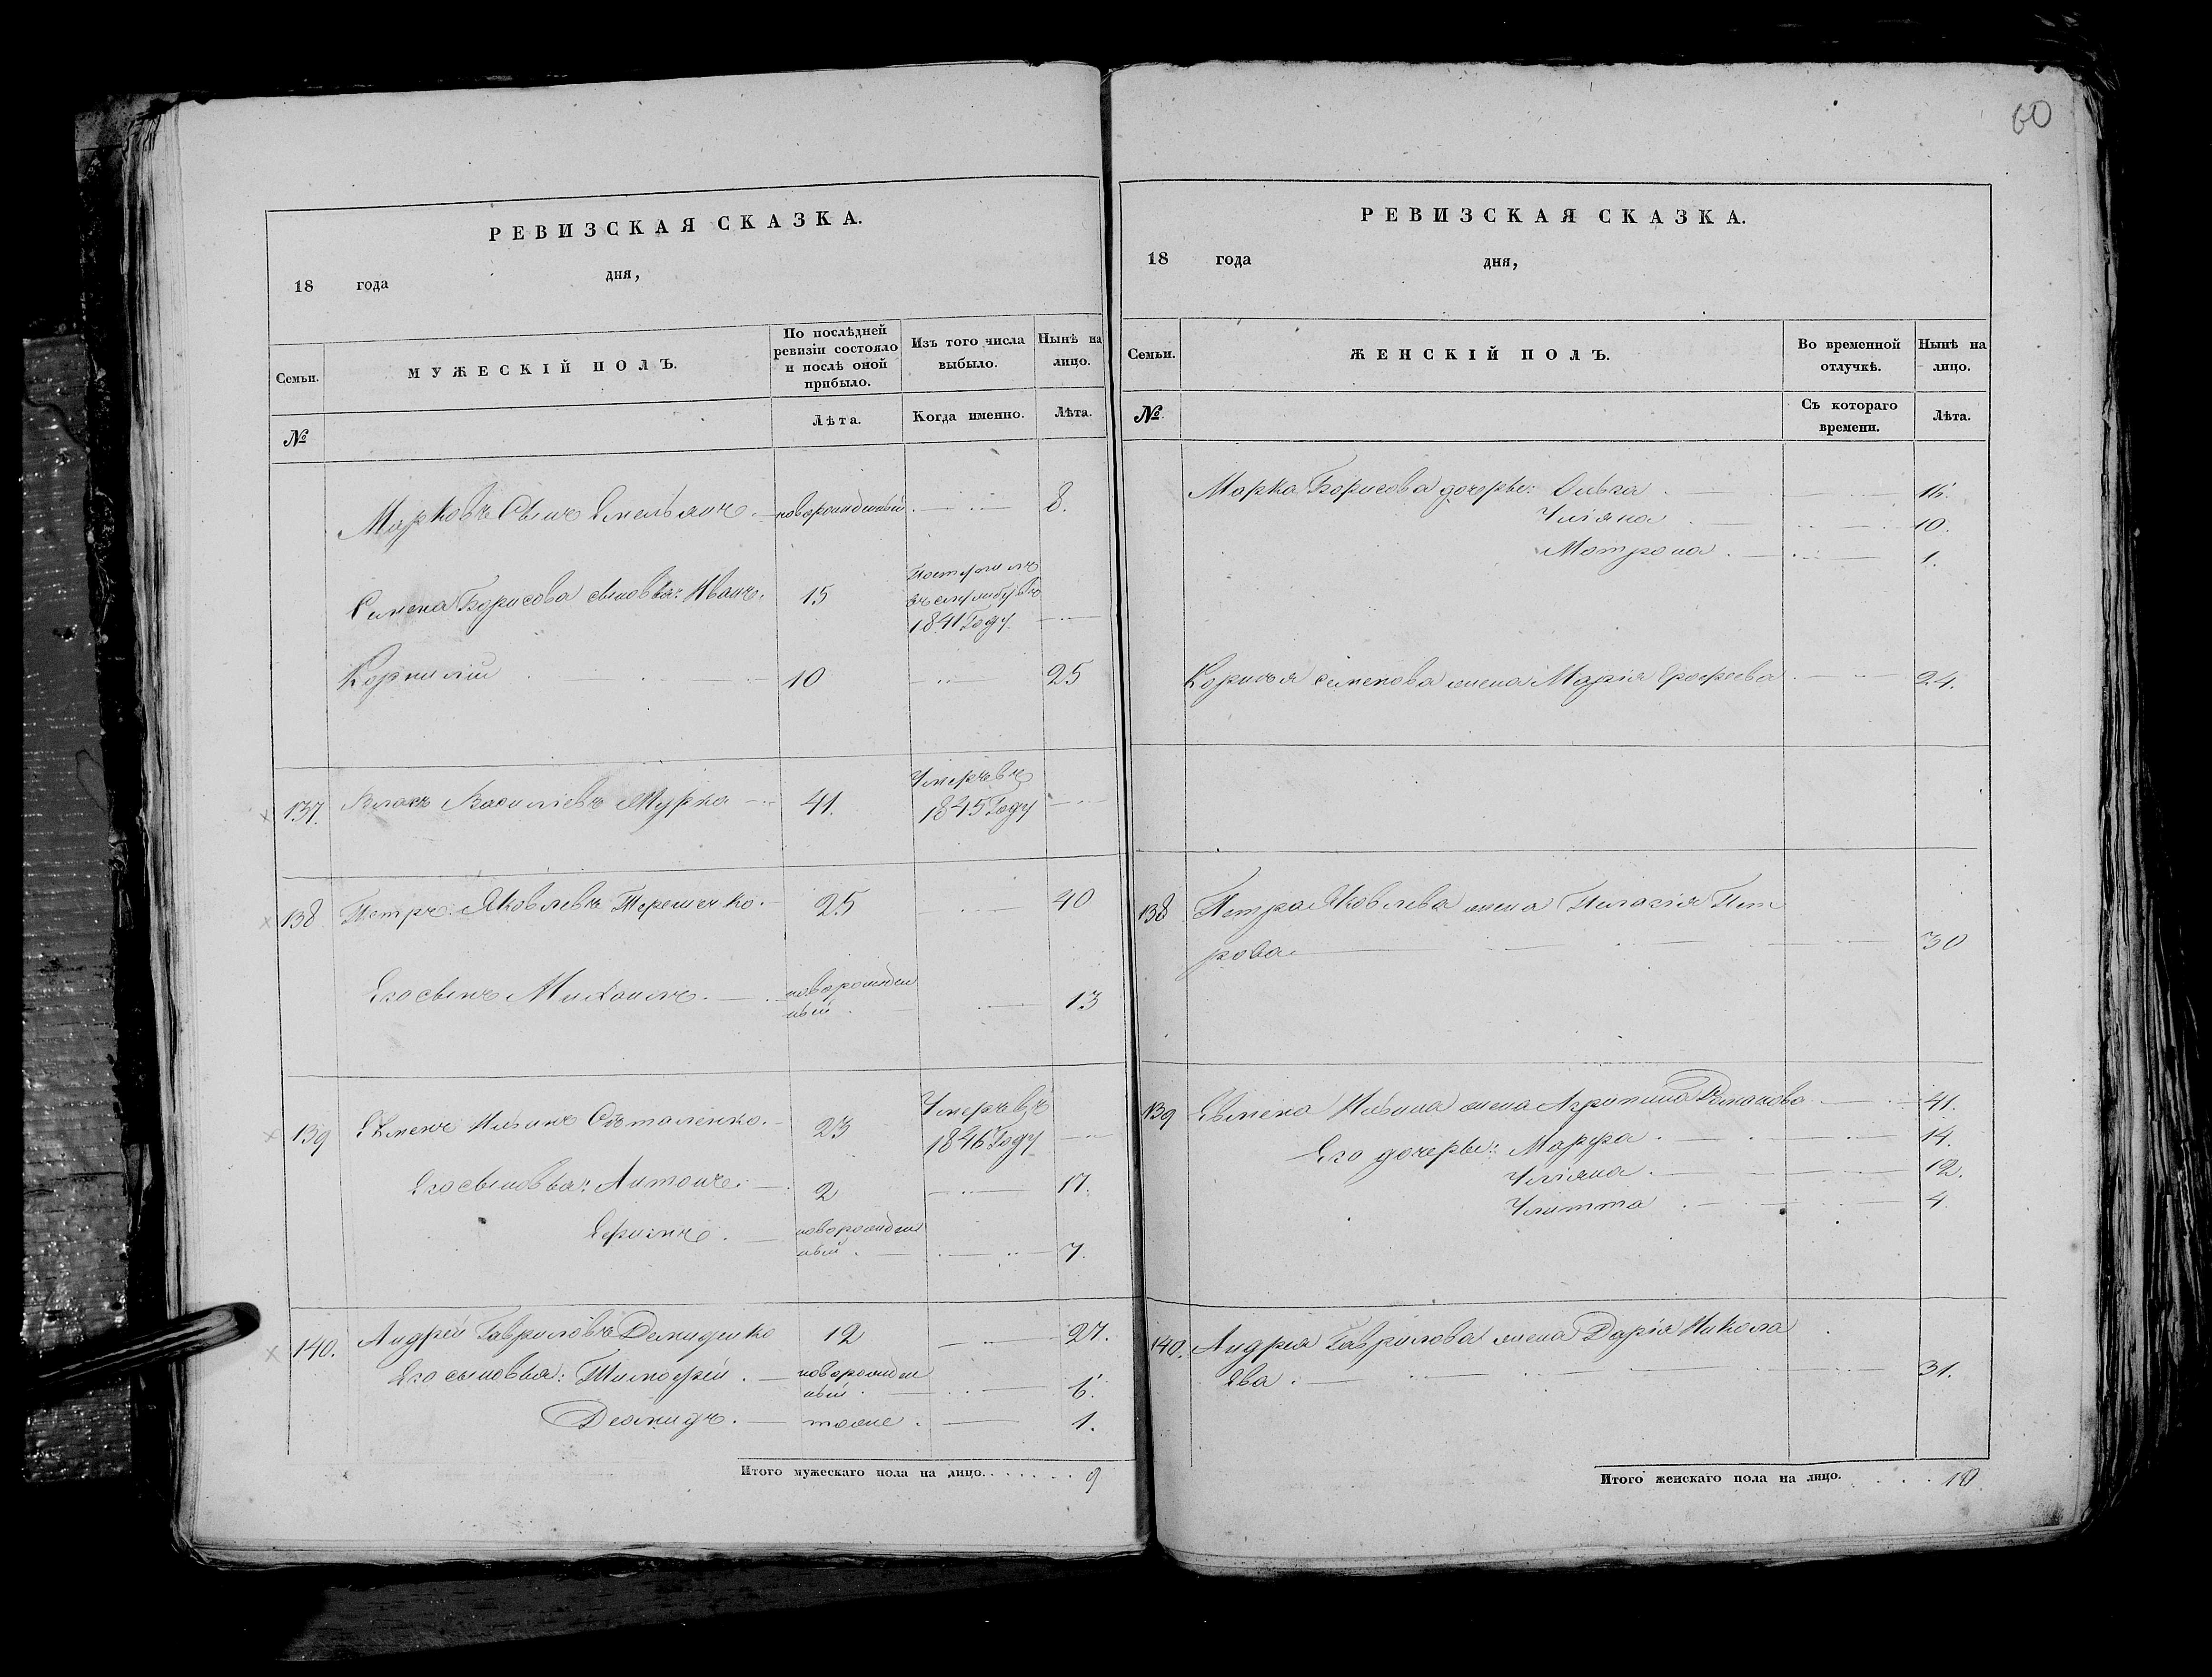 60
РЕВИЗСКАЯ СКАЗКА.
18 года дня,
Семьи. МУЖЕСКІЙ ПОЛЪ. По послѣдней ревизіи состояло и послѣ оной прибыло. Изъ того числа выбыло. Нынѣ на лицо.
№ Лѣта. Когда именно. Лѣта.
Марковъ Сынъ Емельянъ новорожденный 8.
Семена Борисова сыновья: Иванъ. 15
въ
1841 Году
Корнилій 10 25
137. Власъ Василіевъ Мурка 41. Умеръ въ
1845 Году
138 Петръ Яковлевъ Терещенко. 25 40
Его сынъ Михаилъ. новорожден
ный 13
139 Евменъ Ильинъ 23 Умеръ въ
1846 Году
Его сыновья: Антонъ. 2 17.
Ефимъ. новорожден
ный 7.
140. Андрей Гавриловъ Демиденко 12 27.
Его сыновья: Тимофей. новорожден
ный 6.
Демидъ. тоже 1.
Итого мужескаго пола на лицо. 9
РЕВИЗСКАЯ СКАЗКА.
18 года дня,
Семьи. ЖЕНСКІЙ ПОЛЪ. Во временной отлучкѣ. Нынѣ на лицо.
№ Съ котораго времени. Лѣта.
Марка Борисова дочеры: 16.
Уліяна 10.
Матрона 1.
Корнилія Семенова жена Марія Ерофеева 24.
138 Петра Яковлева жена Пелагія Пет
рова 30
139 Евмена Ильина жена Агрипина 41.
Его дочеры: Марфа. 14.
Уліяна 12.
Улитта 4
140. Андрея Гаврилова жена Дарія Никола
ева. 31.
Итого женскаго пола на лицо. 10